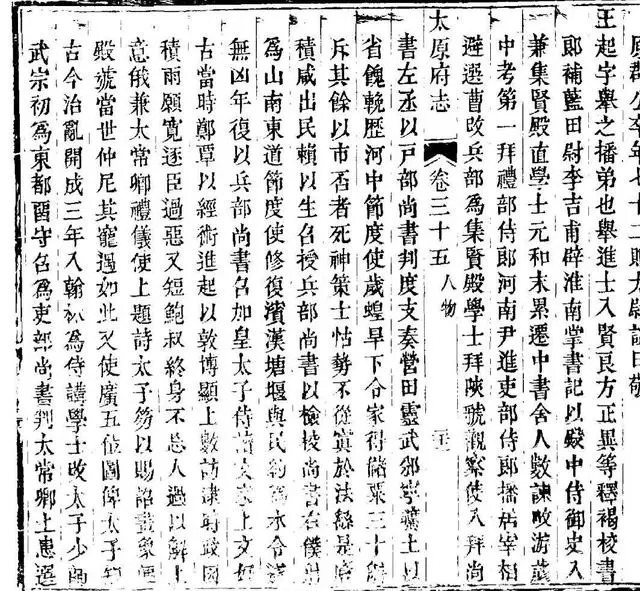 王起字舉之播弟也舉進士入賢良方正異等釋褐校書
郎補藍田尉李吉甫辟淮南掌書記以殿中侍御史入
兼集賢殿直學士元和末累遷中書舍人數諫畋游
中考第一拜禮部侍郎河南尹進吏部侍郎播居宰相
避選曹改兵部為集賢殿學士拜陝虢觀察使入拜尚
太原府志 卷三十五 人物
書左丞以戶部尚書判度支奏營田靈武邠寧
省餽輓歷河中節度使歲蝗旱下令家得儲粟三十斛
斥其餘以市否者死神策士怙勢不從寘於法繇是
積咸出民賴以生召授兵部尚書以檢校尚書右僕射
為山南東道節度使修復濱漢塘堰與民約為水令遂
無凶年復以兵部尚書召加皇太子侍讀文宗上文好
古當時鄭覃以經術進起以敦博顯上數訪逮時政因
積雨願寬逐臣過惡又短鮑叔終身不忘人過以解上
意俄兼太常卿禮儀使上題詩太子笏以賜詔畫象便
殿號當世仲尼其寵遇如此又使廣五位圖俾太子知
古今治亂開成三年入翰林為侍講學士改太子少師
武宗初為東都留守召為吏部尚書判太常卿上